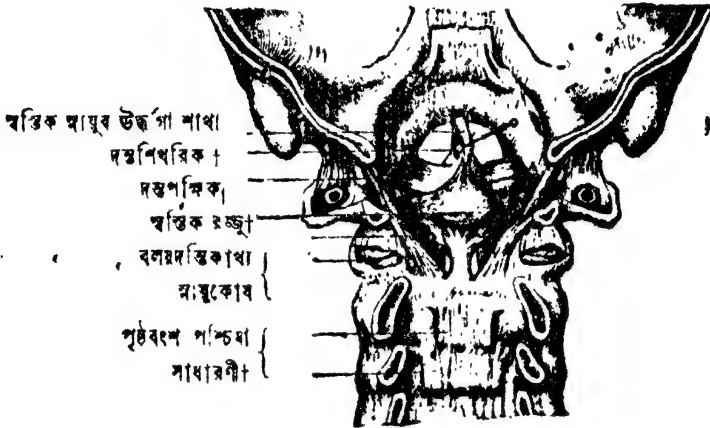 স্বস্তিক স্নায়ুর ঊর্দ্ধগা শাখা
দন্তশিখরিকা
দন্তপক্ষিকা
স্বস্তিক রজ্জু
বলয়দন্তিকাখ্যা
স্নায়ুকোষ
পৃষ্ঠবংশ পশ্চিমা
সাধারণী